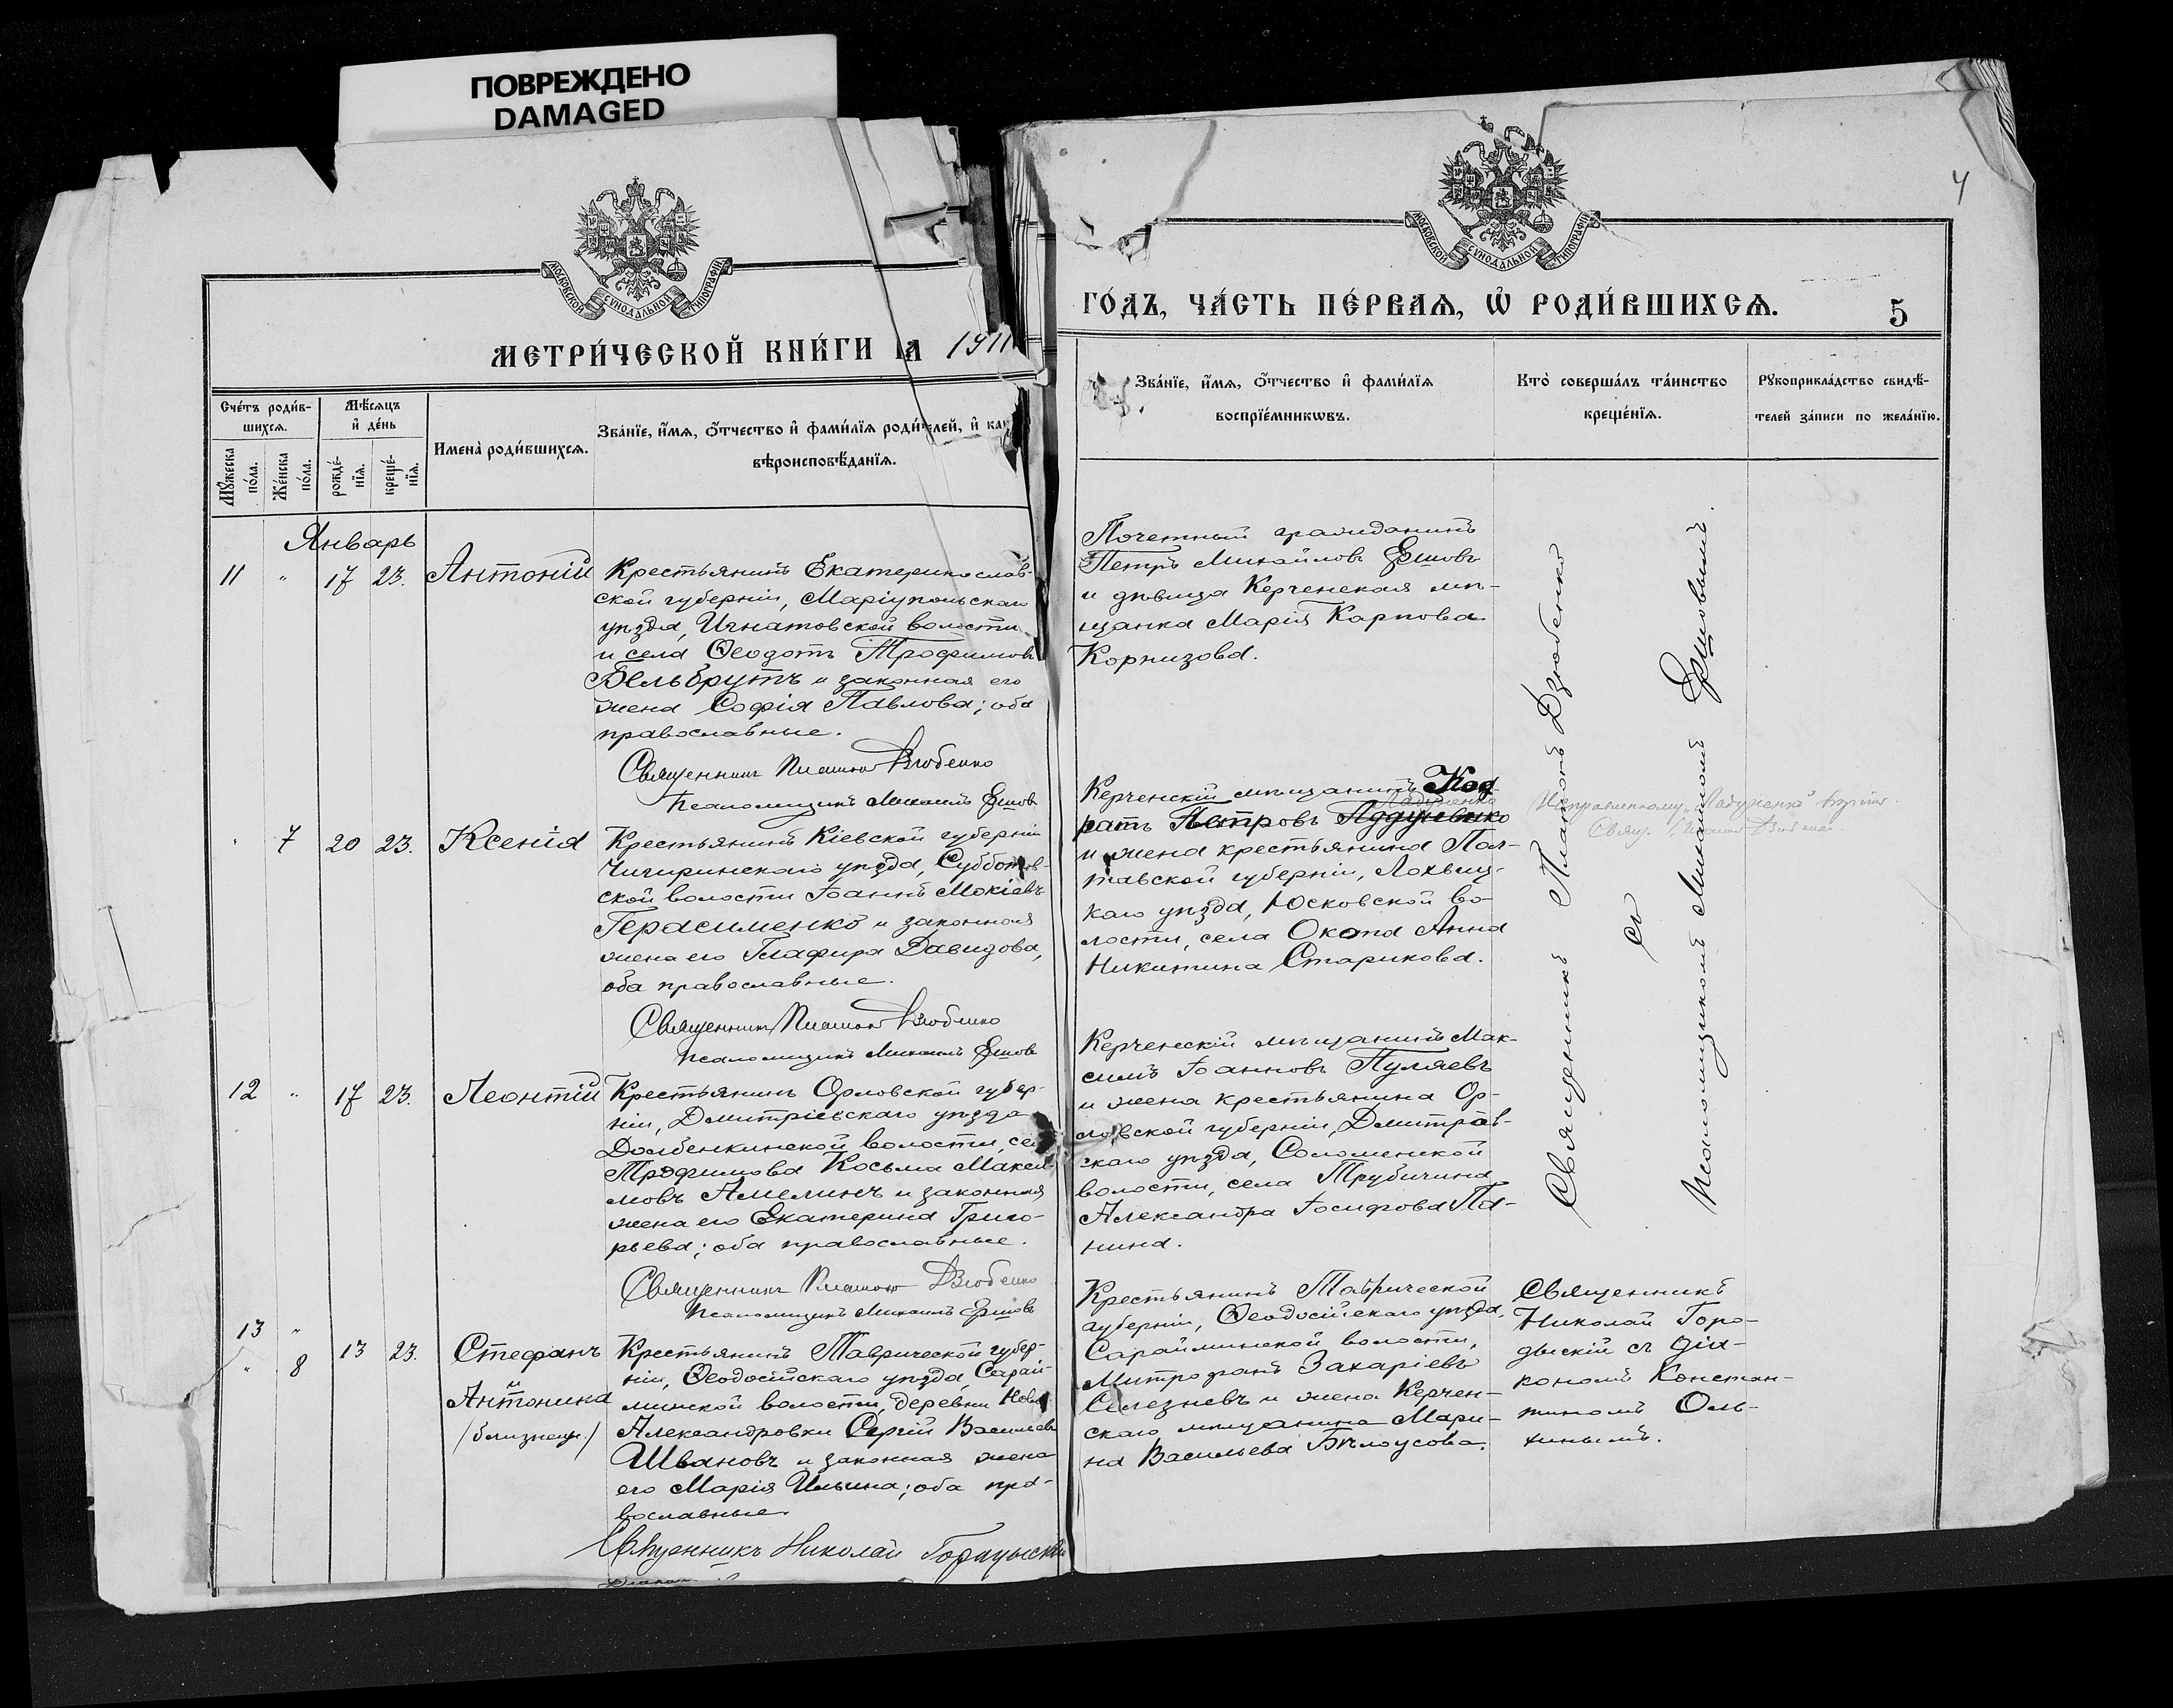 ПОВРЕЖДЕНО
DAMAGED
МОСКОВСКОЙ СѴНОДАЛЬНОЙ ТИПОГРАФІИ.
МЕТРИ́ЧЕСКОЙ КНИ́ГИ НА 1911
Сче́тъ роди́в-
шихсѧ.
Мꙋ́жеска
по́ла.
Же́нска
по́ла.
Мѣ́сѧцъ
и҆ де́нь
рожде́-
нїѧ.
креще́-
нїѧ.
Имена̀ роди́вшихсѧ.
Зва́нїе, и҆́мѧ, ѻ҆́тчество и҆ фами́лїѧ роди́телей, и҆ как
вѣроисповѣ́данїѧ.
Январь
11 " 17 23. Антоній
Крестьянинъ Екатеринослав-
ской губерніи, Маріупольскаго
уѣзда, Игнатовской волости
и села Ѳеодотъ Трофимовъ
Бельбрутъ и законная его
жена Софія Павлова; оба
православные.
Священникъ Платонъ Дзюбенко
Псаломщикъ Михаилъ Ершовъ
" 7 20 23. Ксенія
Крестьянинъ Кіевской губерніи
Чигиринскаго уѣзда, Субботов-
ской волости Іоаннъ Мокіевъ
Герасименко и законная
жена его Глафира Давидова,
оба православные.
Священникъ Платонъ Дзюбенко
Псаломщикъ Михаилъ Ершовъ
12 " 17 23. Леонтій
Крестьянинъ Орловской губер-
ніи, Дмитріевскаго уѣзда
Долбенкинской волости, села
Трофимова Косьма Макси
мовъ Амелинъ и законная
жена его Екатерина Григо-
рьева; оба православные.
Священникъ Платонъ Дзюбенко
Псаломщикъ Михаилъ Ершовъ
13 "
" 8
13 23. Стефанъ
и
Антонина
/близнецы./
Крестьянинъ Таврической губер-
ніи, Ѳеодосійскаго уѣзда, Сарай-
минской волости, деревни Ново
Александровки Сергій Васильевъ
Швановъ и законная жена
его Марія Ильина; оба пра-
вославные.
Священникъ Николай Городыскій
4
МОСКОВСКОЙ СѴНОДАЛЬНОЙ ТИПОГРАФІИ.
ГО́ДЪ, ЧА́СТЬ ПЕ́РВАѦ, Ѡ҆ РОДИ́ВШИХСѦ.
5
Зва́нїе, и҆́мѧ, ѻ҆́тчество и҆ фами́лїѧ
воспрїе́мникѡвъ.
Кто̀ соверша́лъ та́инство
креще́нїѧ.
Рꙋкоприкла́дство свидѣ́-
телей за́писи по жела́нїю.
Почетный гражданинъ
Петръ Михайловъ Ершовъ
и дѣвица Керченская мѣ-
щанка Марія Карпова
Корнизова.
Керченскій мѣщанинъ Код-
Ладуненко
ратъ Петровъ Лддуненко
и жена крестьянина Пол-
тавской губерніи, Лохвиц-
каго уѣзда, Юсковской во-
лости, села Окопа Анна
Никитина Старикова.
Керченскій мѣщанинъ Мак-
симъ Іоанновъ Пуляевъ
и жена крестьянина Ор-
ловской губерніи, Дмитров-
скаго уѣзда, Соломинской
волости, села Трубичина
Александра Іосифова Па-
нина.
Крестьянинъ Таврической
губерніи, Ѳеодосійскаго уѣзда,
Сарайминской волости,
Митрофанъ Захаріевъ
Селезневъ и жена Керчен-
скаго мѣщанина Мари-
на Васильева Бѣлоусова.
Священникъ Платонъ Дзюбенко
съ
Псаломщикомъ Михаиломъ Ершовымъ.
Исправленному „Ладуненко" вѣрить.
Свящ. Платонъ Дзюбенко.
Священникъ
Николай Горо-
дыскій съ діа-
кономъ Констан-
тиномъ Оль-
хинымъ.